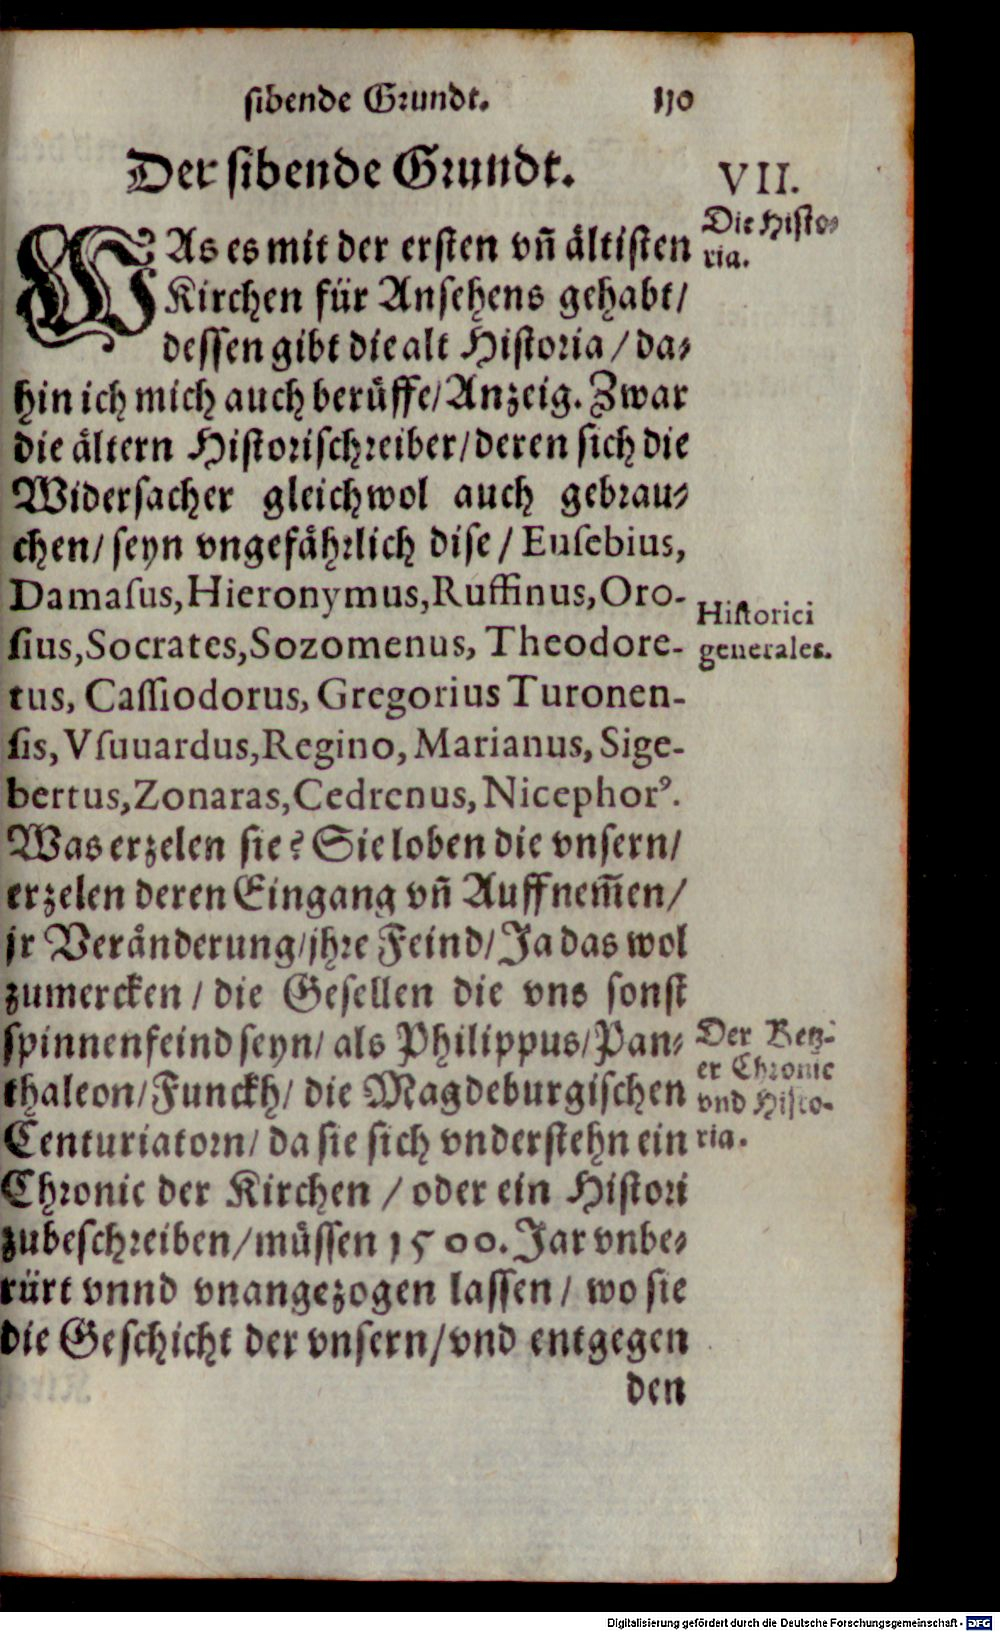 sibende Grundt. 110
Der sibende Grundt.
VII.
Die Histo⸗
ria.
WAs es mit der ersten vñ ältisten
Kirchen für Ansehens gehabt/
dessen gibt die alt Historia / da⸗
hin ich mich auch berůffe/ Anzeig. Zwar
die ältern Historischreiber/ deren sich die
Widersacher gleichwol auch gebrau⸗
chen/ seyn vngefährlich dise / Euſebius,
Damaſus, Hieronymus, Ruffinus, Oro-
ſius, Socrates, Sozomenus, Theodore-
tus, Caſſiodorus, Gregorius Turonen-
ſis, Vſuuardus, Regino, Marianus, Sige-
bertus, Zonaras, Cedrenus, Nicephorꝰ.
Historici
generales.
Was erzelen sie? Sie loben die vnsern/
erzelen deren Eingang vñ Auffnem̃en/
jr Veränderung/ jhre Feind/ Ja das wol
zumercken / die Gesellen die vns sonst
spinnenfeind seyn/ als Philippus/ Pan⸗
thaleon/ Funckh/ die Magdeburgischen
Centuriatorn/ da sie sich vnderstehn ein
Chronic der Kirchen / oder ein Histori
zubeschreiben/ müssen 1500. Jar vnbe⸗
rürt vnnd vnangezogen lassen / wo sie
die Geschicht der vnsern/ vnd entgegen
Der Ketz⸗
er Chronic
vnd Histo-
ria.
den
Digitalisierung gefördert durch die Deutsche Forschungsgemeinschaft - DFG